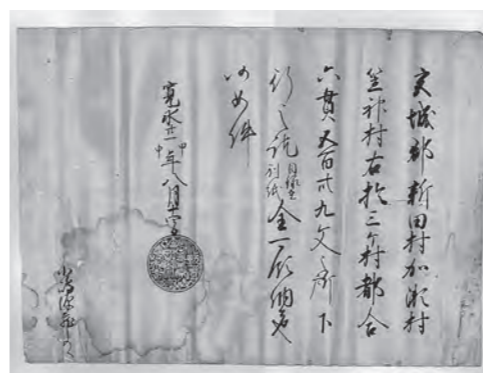 宮城郡新田村加瀬村
笠神村右於三ヶ村都合
六貫五百廿九文之所下
行之訖目録在別紙全可領納者也
仍如件
寛永廿一年甲申八月十四日